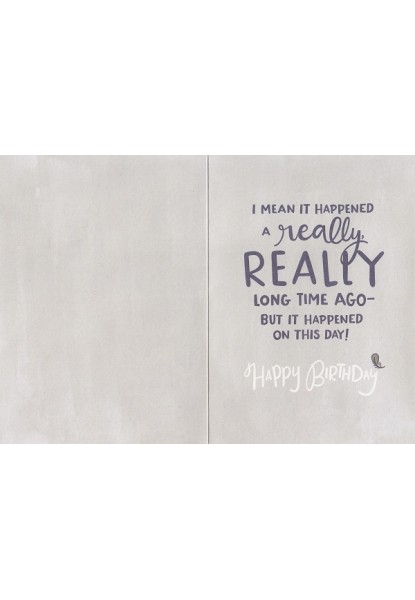 I MEAN IT HAPPENED
A really,
REALLY
LONG TIME AGO—
BUT IT HAPPENED
ON THIS DAY!
HAPPY BIRTHDAY